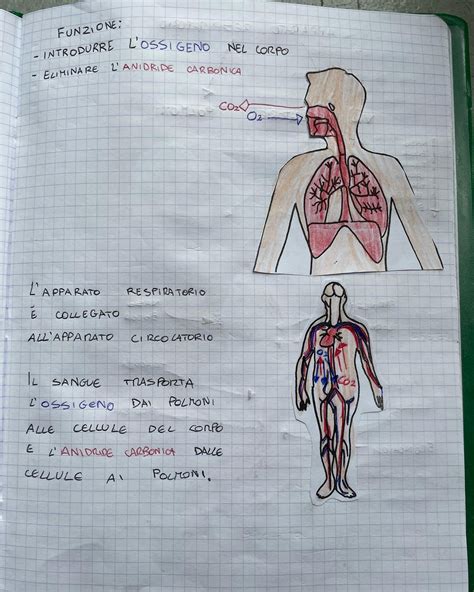 FUNZIONE:
- INTRODURRE L'OSSIGENO NEL CORPO
- ELIMINARE L'ANIDRIDE CARBONICA
CO2
O2
L'APPARATO RESPIRATORIO
È COLLEGATO
ALL'APPARATO CIRCOLATORIO
IL SANGUE TRASPORTA
L'OSSIGENO DAI POLMONI
ALLE CELLULE DEL CORPO
E L'ANIDRIDE CARBONICA DALLE
CELLULE AI POLMONI.
O2
CO2